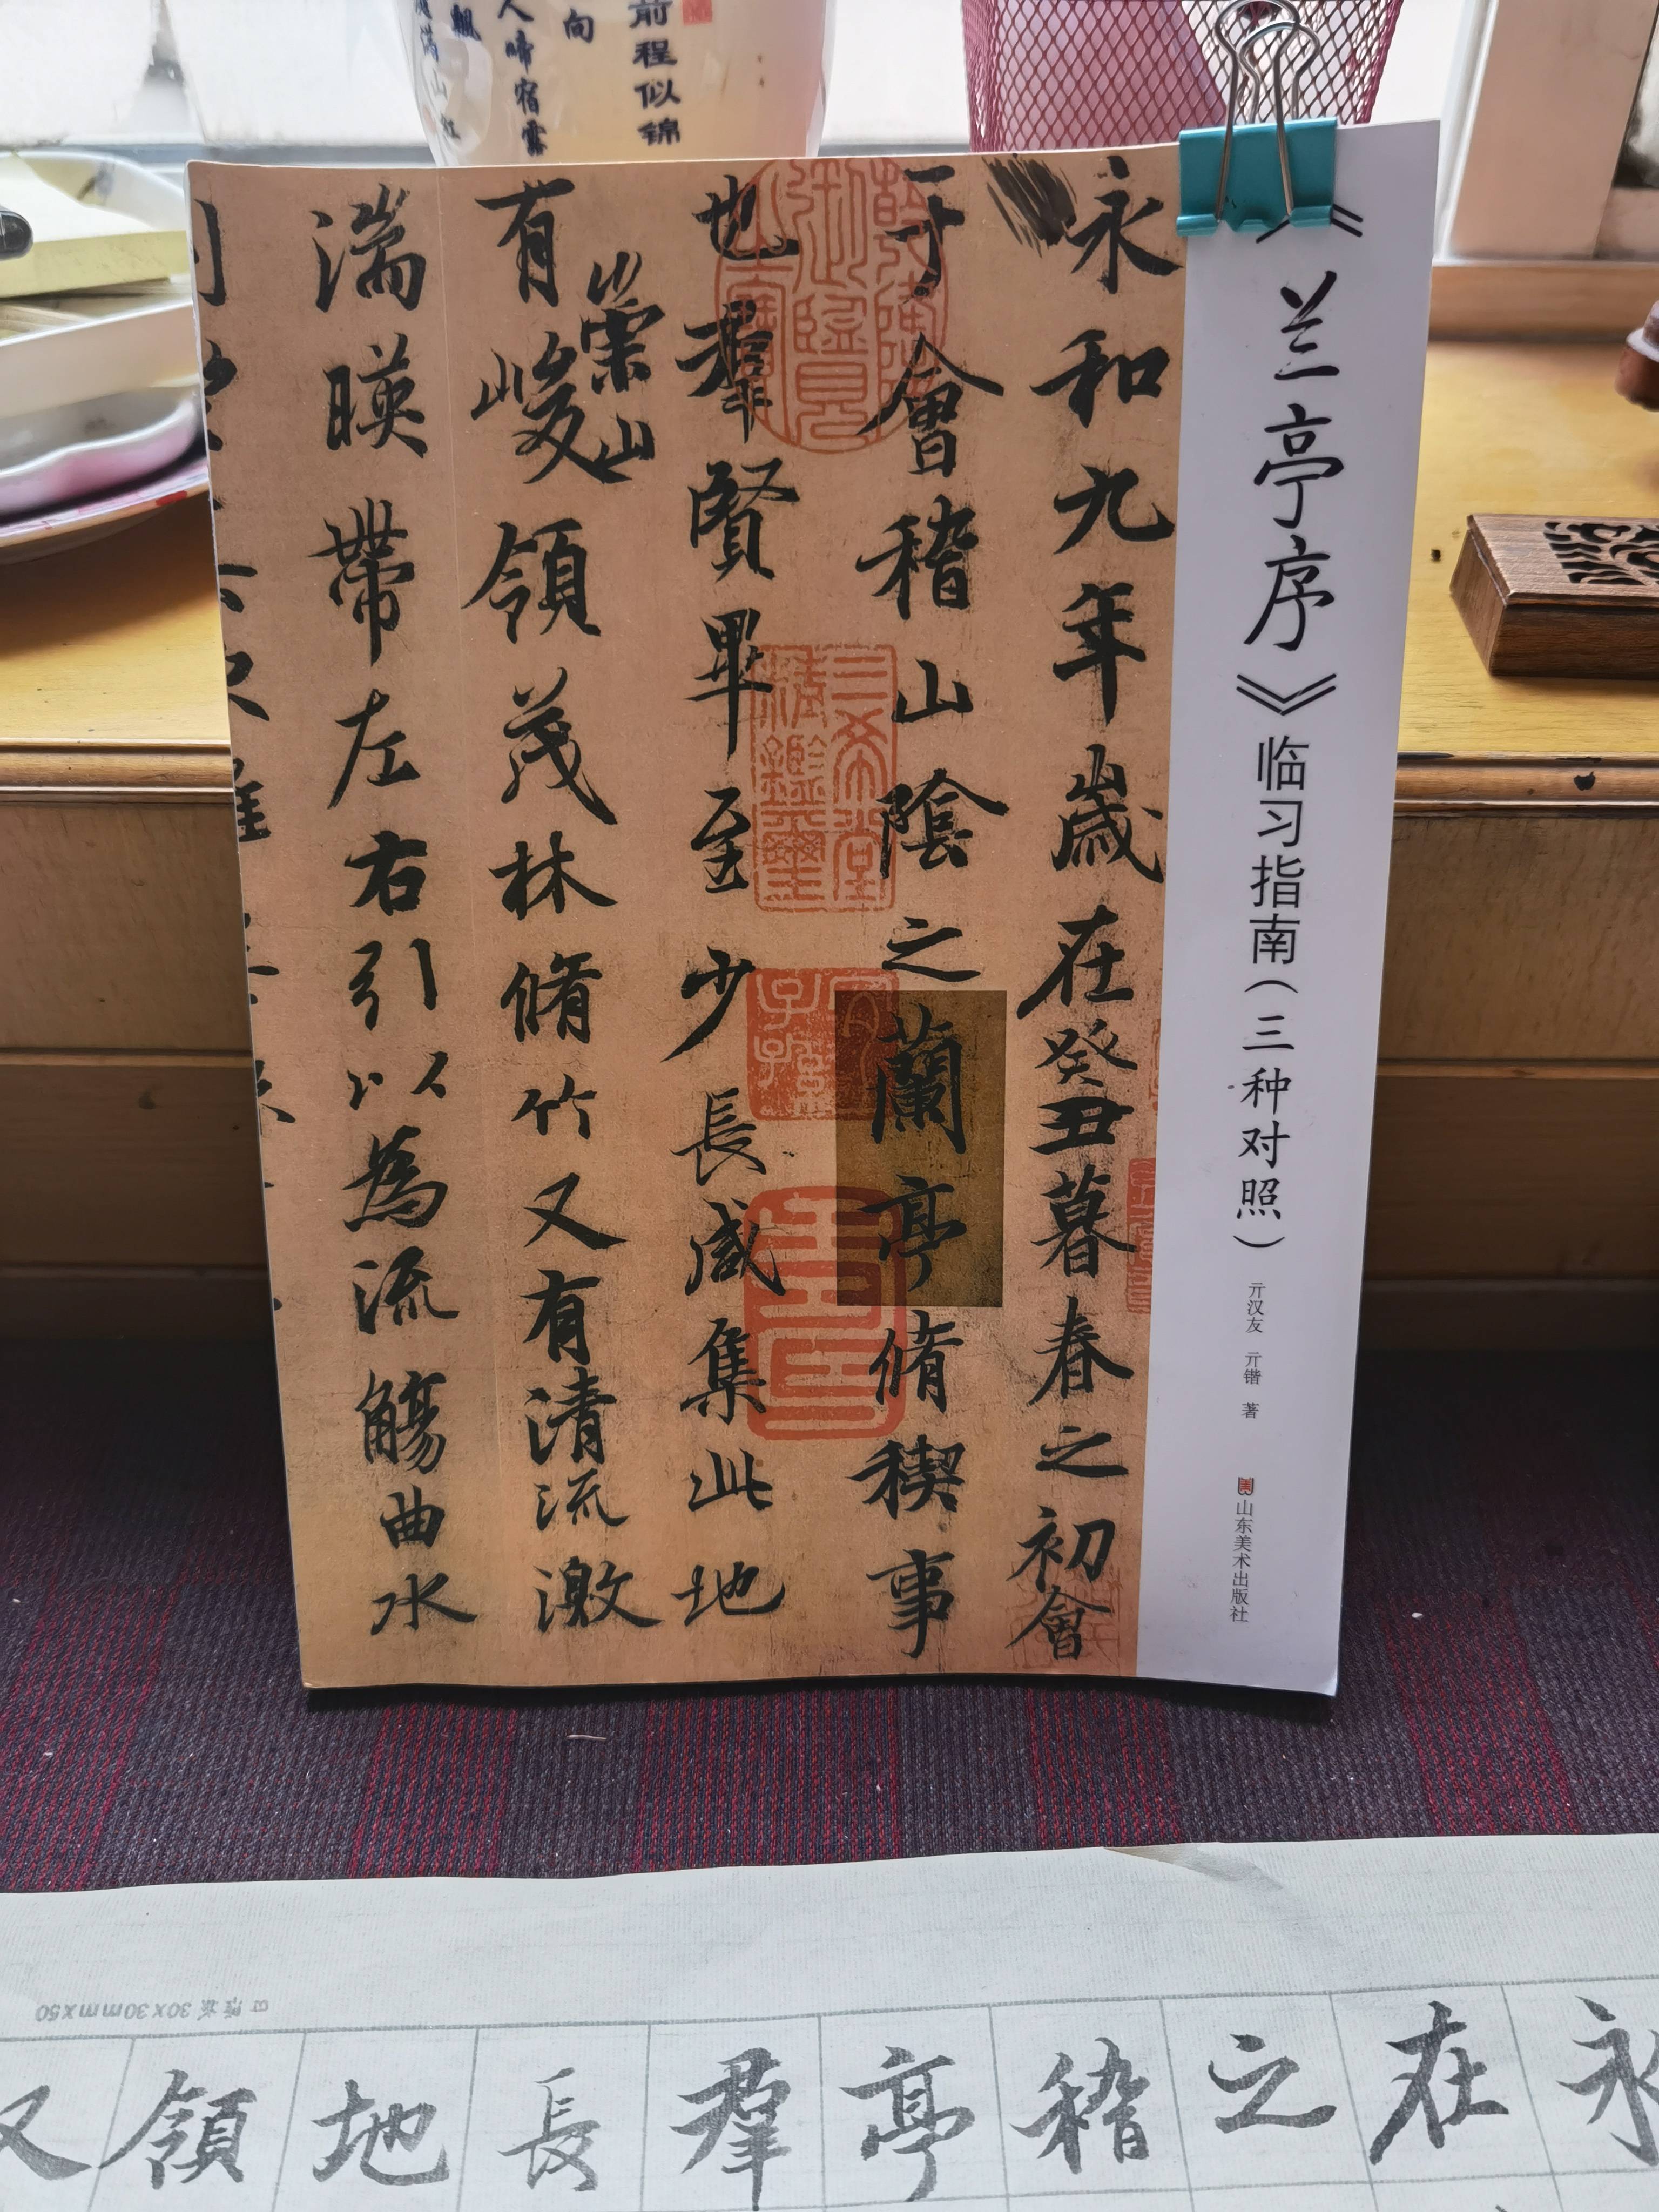 《兰亭序》临习指南(三种对照)
亓汉友 亓锴 著
山东美术出版社
永和九年歲在癸丑暮春之初會
于會稽山陰之蘭亭脩稧事
也羣賢畢至少長咸集此地
崇山
有峻領茂林脩竹又有清流激
湍暎帶左右引以為流觴曲水
三希堂精鑑璽
前程似锦
向
人啼宿霧
飘
满山红
30x30mmx50
永
在
之
稽
亭
羣
長
地
領
又